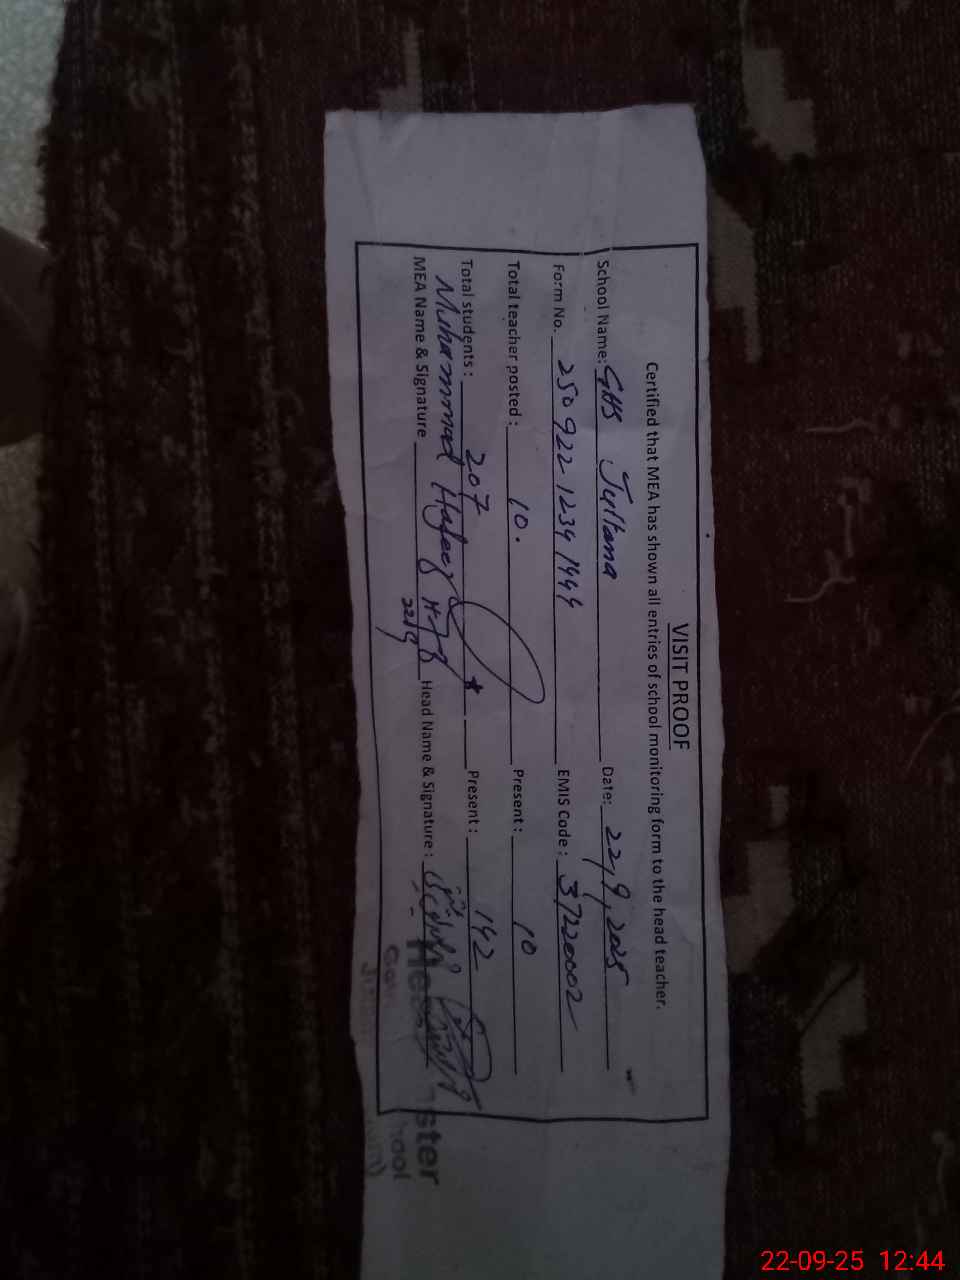 VISIT PROOF
Certified that MEA has shown all entries of school monitoring form to the head teacher.
School Name: GHS Jultana Date: 22,9,2025
Form No. 250 922 1234 1444 EMIS Code: 37220002
Total teacher posted: 10. Present: 10
Total students: 207 Present: 142
Muhammad Hafeez
MEA Name & Signature 22/9 Head Name & Signature:
22-09-25 12:44